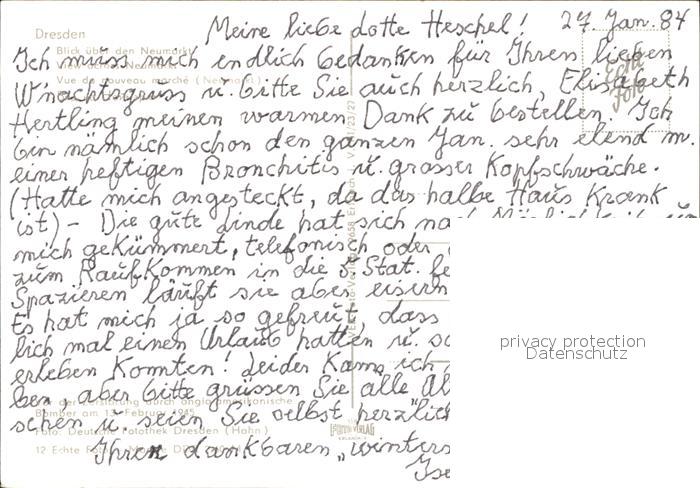 Meine liebe Lotte Heschel! 27. Jan. 84
Dresden
Blick über den Neumarkt
Ich muss mich endlich bedanken für Ihren lieben
Vue du nouveau marché (Neumarkt)
W'nachtsgruss u. bitte Sie auch herzlich, Elisabeth
Echt Foto
Hertling meinen warmen Dank zu bestellen. Ich
bin nämlich schon den ganzen Jan. sehr elend m.
einer heftigen Bronchitis u. grosser Kopfschwäche.
(Hatte mich angesteckt, da das halbe Haus krank
ist) - Die gute Linde hat sich
mich gekümmert, telefonisch oder
zum Raufkommen in die 5. Stat.
Spazieren läuft sie aber eisern
Es hat mich ja so gefreut, dass
lich mal einen Urlaub hatten u.
erleben konnten! Leider kann ich
ben, aber bitte grüssen Sie alle
vor der Zerstörung durch angloamerikanische
Bomber am 13. Februar 1945
schen u. seien Sie selbst herzlich
Foto: Deutsche Fotothek Dresden (Hahn)
12 Echte Fotos
Ihrer dankbaren „winters
privacy protection
Datenschutz